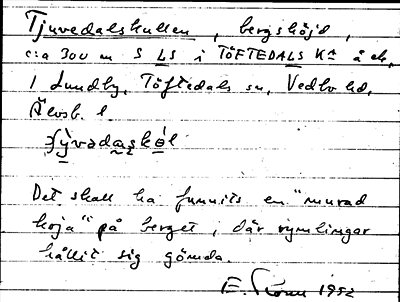 Tjuvedalskullen, bergshöjd,
c:a 300 m S LS i TÖFTEDALS KA å ek.
1 Lundby, Töftedals sn, Vedbo hd,
Älvsb. l.
Det skall ha funnits en "murad
koja" på berget, där rymlingar
hållit sig gömda.
E. 1952